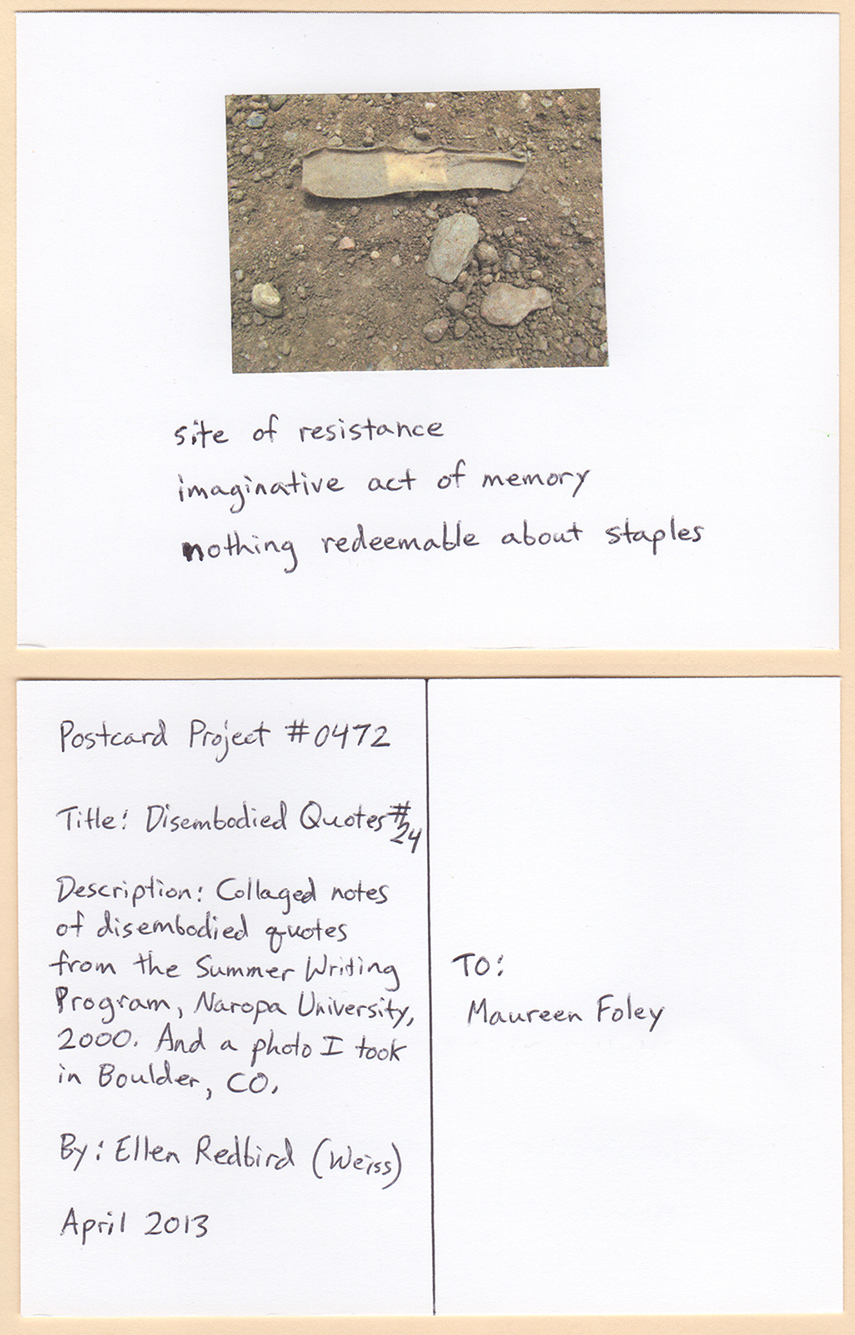 site of resistance
imaginative act of memory
nothing redeemable about staples
Postcard Project #0472
Title: Disembodied Quotes #24
Description: Collaged notes
of disembodied quotes
from the Summer Writing
Program, Naropa University,
2000. And a photo I took
in Boulder, CO.
By: Ellen Redbird (Weiss)
April 2013
TO:
Maureen Foley